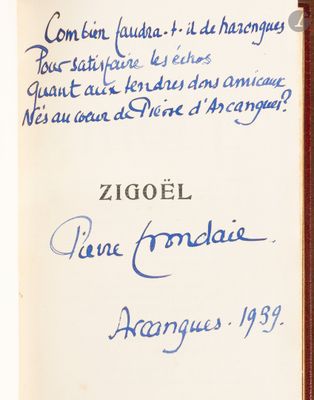 Combien faudra-t-il de harangues
Pour satisfaire les échos
Quant aux tendres dons amicaux
Nés au coeur de Pierre d'Arcangues?
ZIGOËL
Pierre Frondaie.
Arcangues. 1939.